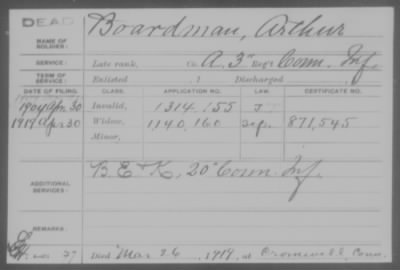 DEAD
NAME OF SOLDIER:
Boardman, Arthur
SERVICE:
Late rank, Co. A. 3" Reg't Conn. Inf.
TERM OF SERVICE:
Enlisted , 1 Discharged
DATE OF FILING. CLASS. APPLICATION NO. LAW. CERTIFICATE NO.
1904 Apr 30 Invalid, 1314.155
1919 Apr 30 Widow, 1,140,160 871,545
Minor,
ADDITIONAL SERVICES:
B E & K, 20" Conn. Inf.
REMARKS:
27 Died Mar 26, 1919, at Cromwell, Conn.